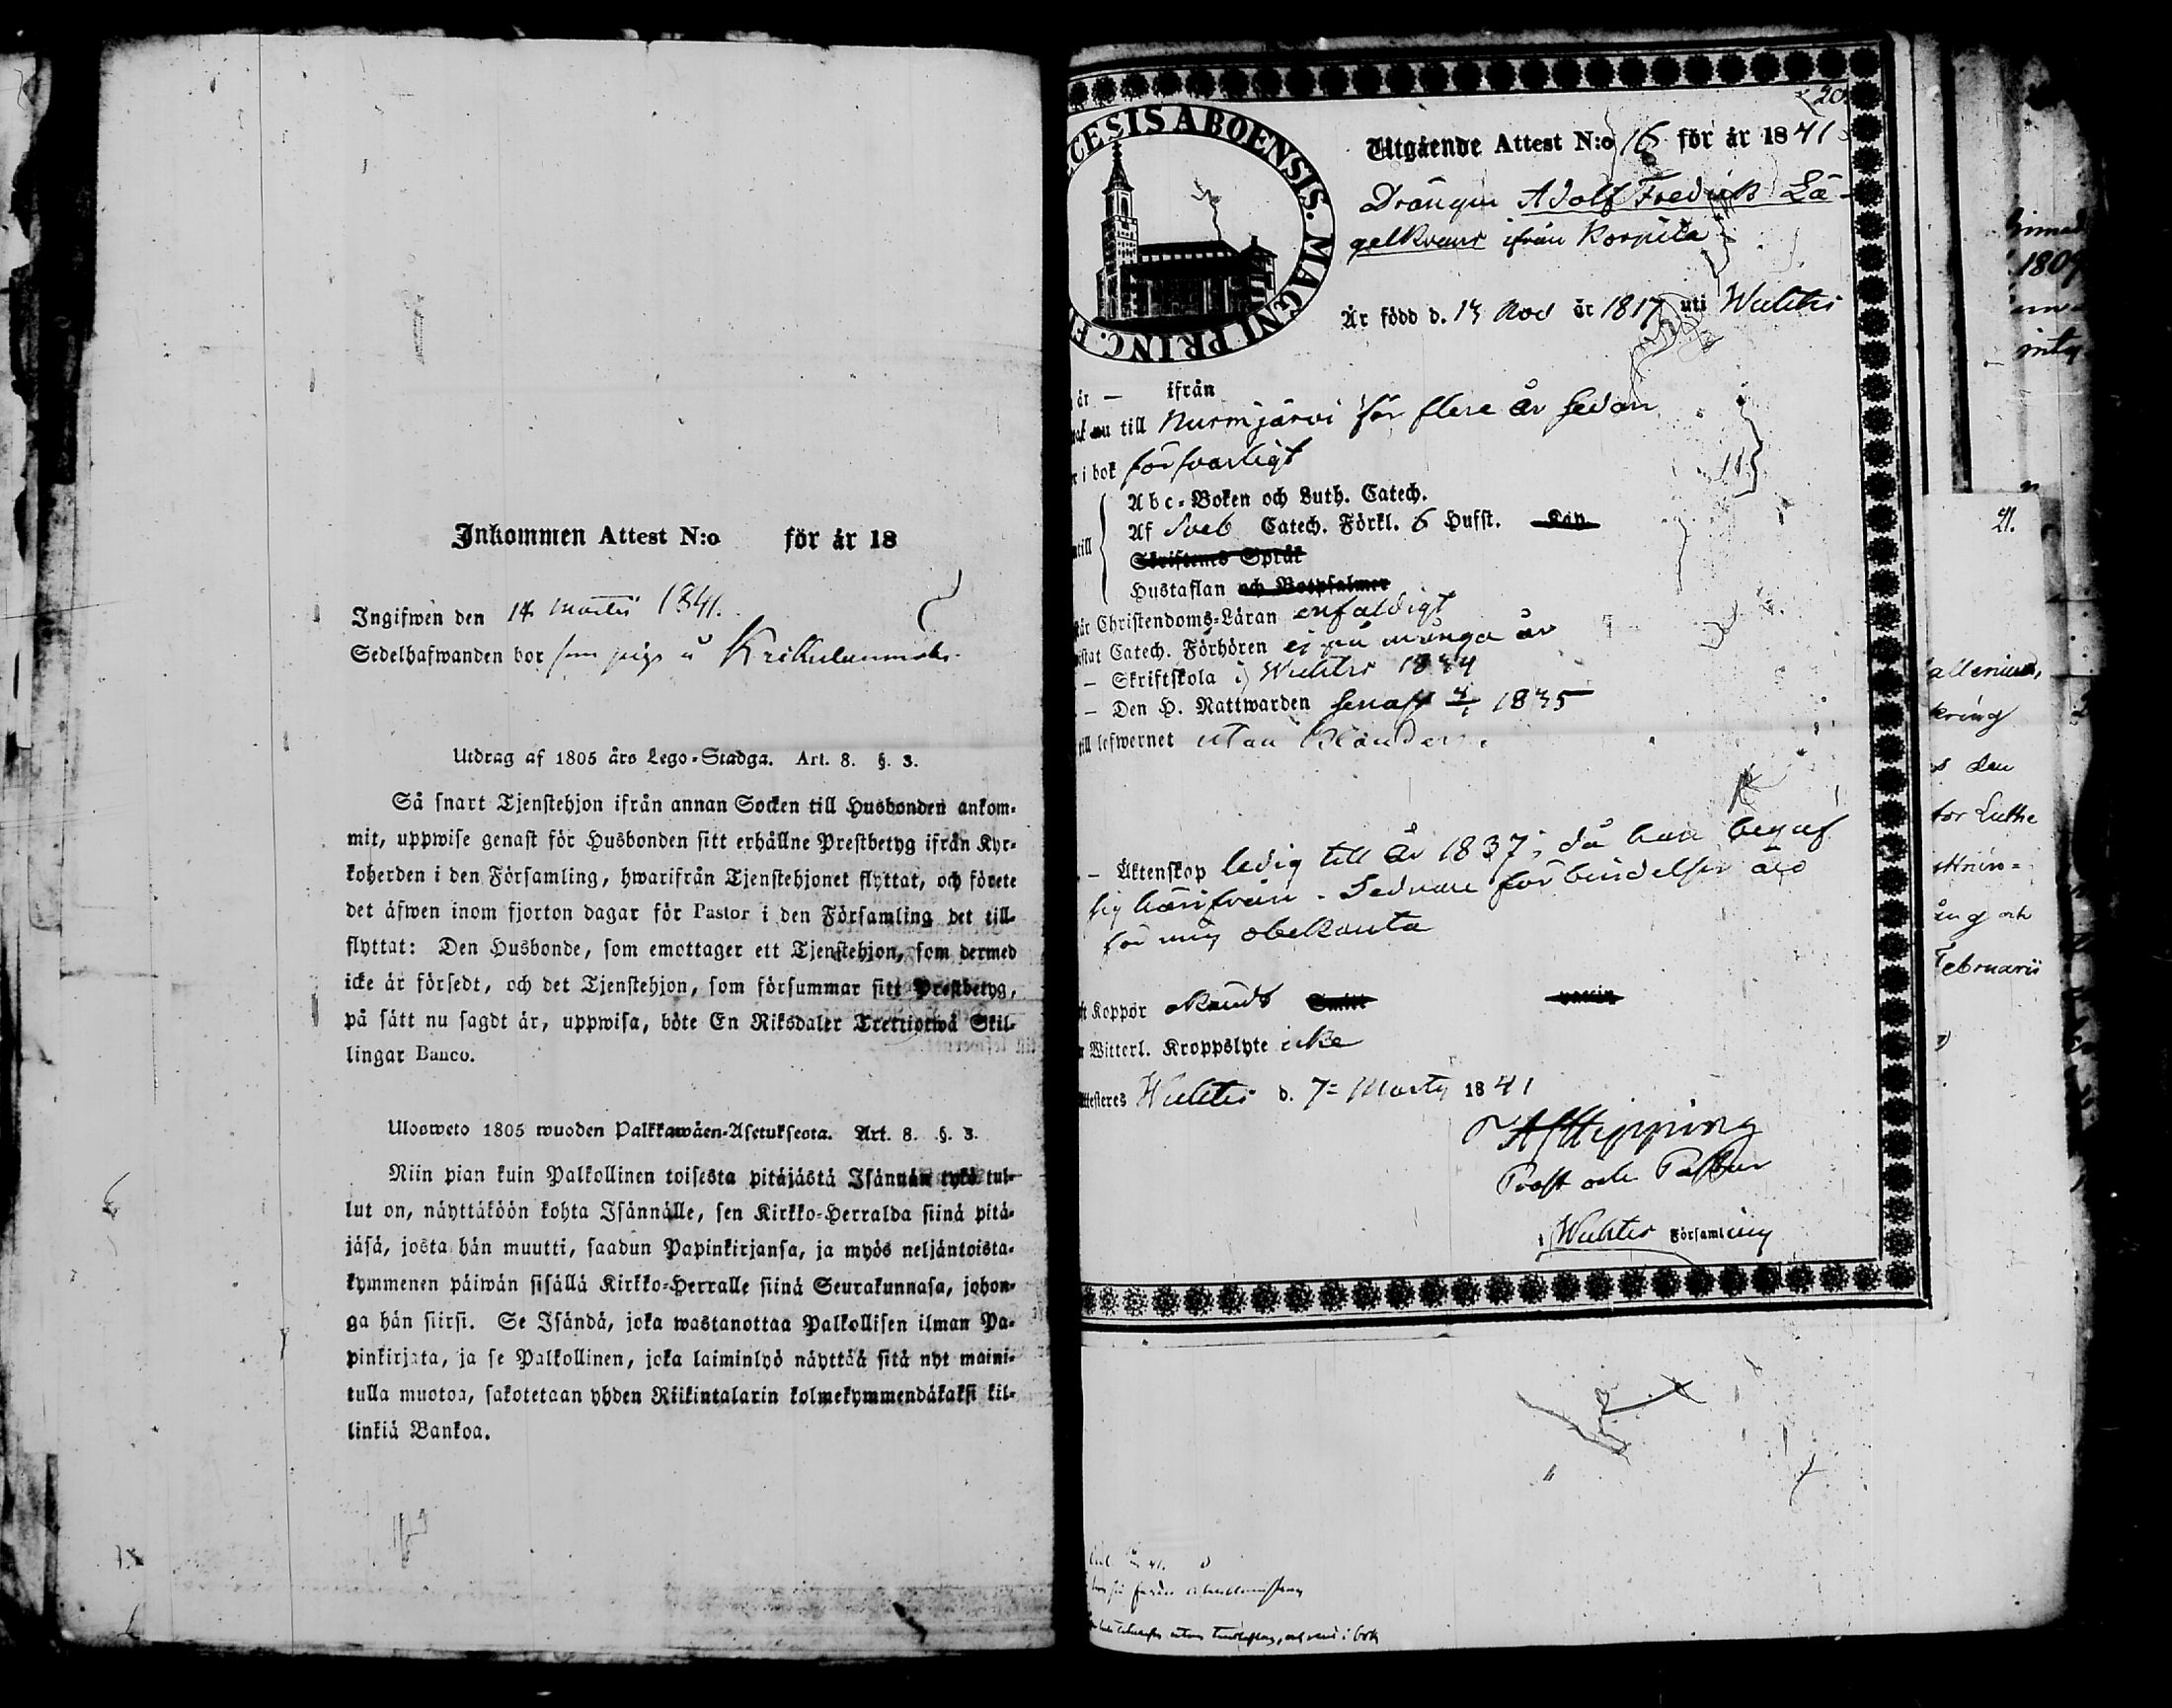 Inkommen Attest N:o för år 18
Ingifwen den 14 Martii 1841.
Sedelhafwanden bor som
Utdrag af 1805 års Lego-Stadga. Art. 8. §. 3.
Så snart Tjenstehjon ifrån annan Socken till Husbonden ankom-
mit, uppwise genast för Husbonden sitt erhållne Prestbetyg ifrån Kyr-
koherden i den Församling, hwarifrån Tjenstehjonet flyttat, och förete
det äfwen inom fjorton dagar för Pastor i den Församling det till-
flyttat: Den Husbonde, som emottager ett Tjenstehjon, som dermed
icke är försedt, och det Tjenstehjon, som försummar sitt Prestbetyg,
på sätt nu sagdt är, uppwisa, böte En Riksdaler Trettiotwå Skil-
lingar Banco.
Ulosweto 1805 wuoden Palkkawäen-Asetuksesta. Art. 8. §. 3.
Niin pian kuin Palkollinen toisesta pitäjästä Isännän tykö tul-
lut on, näyttäköön kohta Isännälle, sen Kirkko-Herralda siinä pitä-
jäsä, josta hän muutti, saadun Papinkirjansa, ja myös neljäntoista-
kymmenen päiwän sisällä Kirkko-Herralle siinä Seurakunnasa, johon-
ga hän siirsi. Se Isändä, joka wastanottaa Palkollisen ilman Pa-
pinkirjata, ja se Palkollinen, joka laiminlyö näyttää sitä nyt maini-
tulla muotoa, sakotetaan yhden Riikintalarin kolmekymmendäkaksi kil-
linkiä Bankoa.
20
CESIS ABOENSIS. MAGNI PRINC. F
Utgående Attest N:o 16 för år 1841
Drängen Adolf Fredrik Lä-
gelkrans ifrån Korpila
Är född d. 13 Nov år 1817 uti Wichtis
är — ifrån
nu till Nurmijärvi för flere år sedan
i bok försvarligt
Abc-Boken och Luth. Catech.
Af Sveb Catech. Förkl. 6 Hufst. Kap
till
Skriftenes Språk
Hustaflan och Botpsalmer
Christendoms-Läran enfaldigt
Catech. Förhören ej på många år
— Skriftskola i Wichtis 1834
— Den H. Nattwarden senast 1835
till lefwernet utan
— Äktenskap ledig till år 1837, då han begaf
sig härifrån. Sednare förbindelser äro
för mig obekanta
Koppor
Witterl. Kroppslyte icke
Attesteres Wichtis d. 7 Martii 1841
A J Hipping
Prost och Pastor
i Wichtis Församling
21.
kring
den
och
Februarii
1809